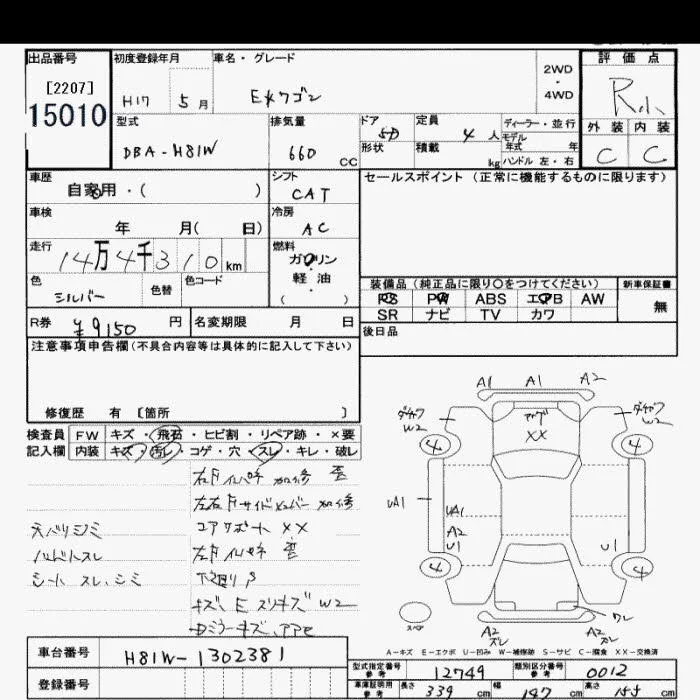 出品番号 初度登録年月 車名・グレード 2WD・4WD 評価点
[2207] H17 5月 EKワゴン R小
15010
型式 排気量 ドア 定員 ディーラー・並行 外装 内装
DBA-H81W 660 CC 5D 4人 モデル年式 年 C C
形状 積載 kg ハンドル 左・右
車歴 シフト セールスポイント(正常に機能するものに限ります)
自家用・( ) CAT
車検 冷房
年 月( 日) AC
走行 燃料
14万4千310km ガソリン・軽油・( )
色 色替 色コード
シルバー
装備品(純正品に限り○をつけてください) 新車保証書
PS PW ABS エアB AW 無
SR ナビ TV カワ
R券 ¥9150円 名変期限 月 日
後日品
注意事項申告欄(不具合内容等は具体的に記入して下さい)
修復歴 有 [箇所 ]
検査員記入欄 FW キズ・飛石・ヒビ割・リペア跡・×要
内装 キズ・汚レ・コゲ・穴・スレ・キレ・破レ
天バリシミ
ハンドルスレ
シートスレ、シミ
コアサポート XX
キズ、E スリキズ W2
A1 A1 A2
W2 XX W2
4 4
UA1 UA1
A2
U1 U1
4 4
スペア ワレ
A2 A2
A-キズ E-エクボ U-凹み W-補修跡 S-サビ C-腐食 XX-交換済
車台番号 H81W-1302381
登録番号
型式指定番号 参考 12749 類別区分番号 参考 0012
車庫証明用 参考 長さ 339cm 幅 147cm 高さ 155cm